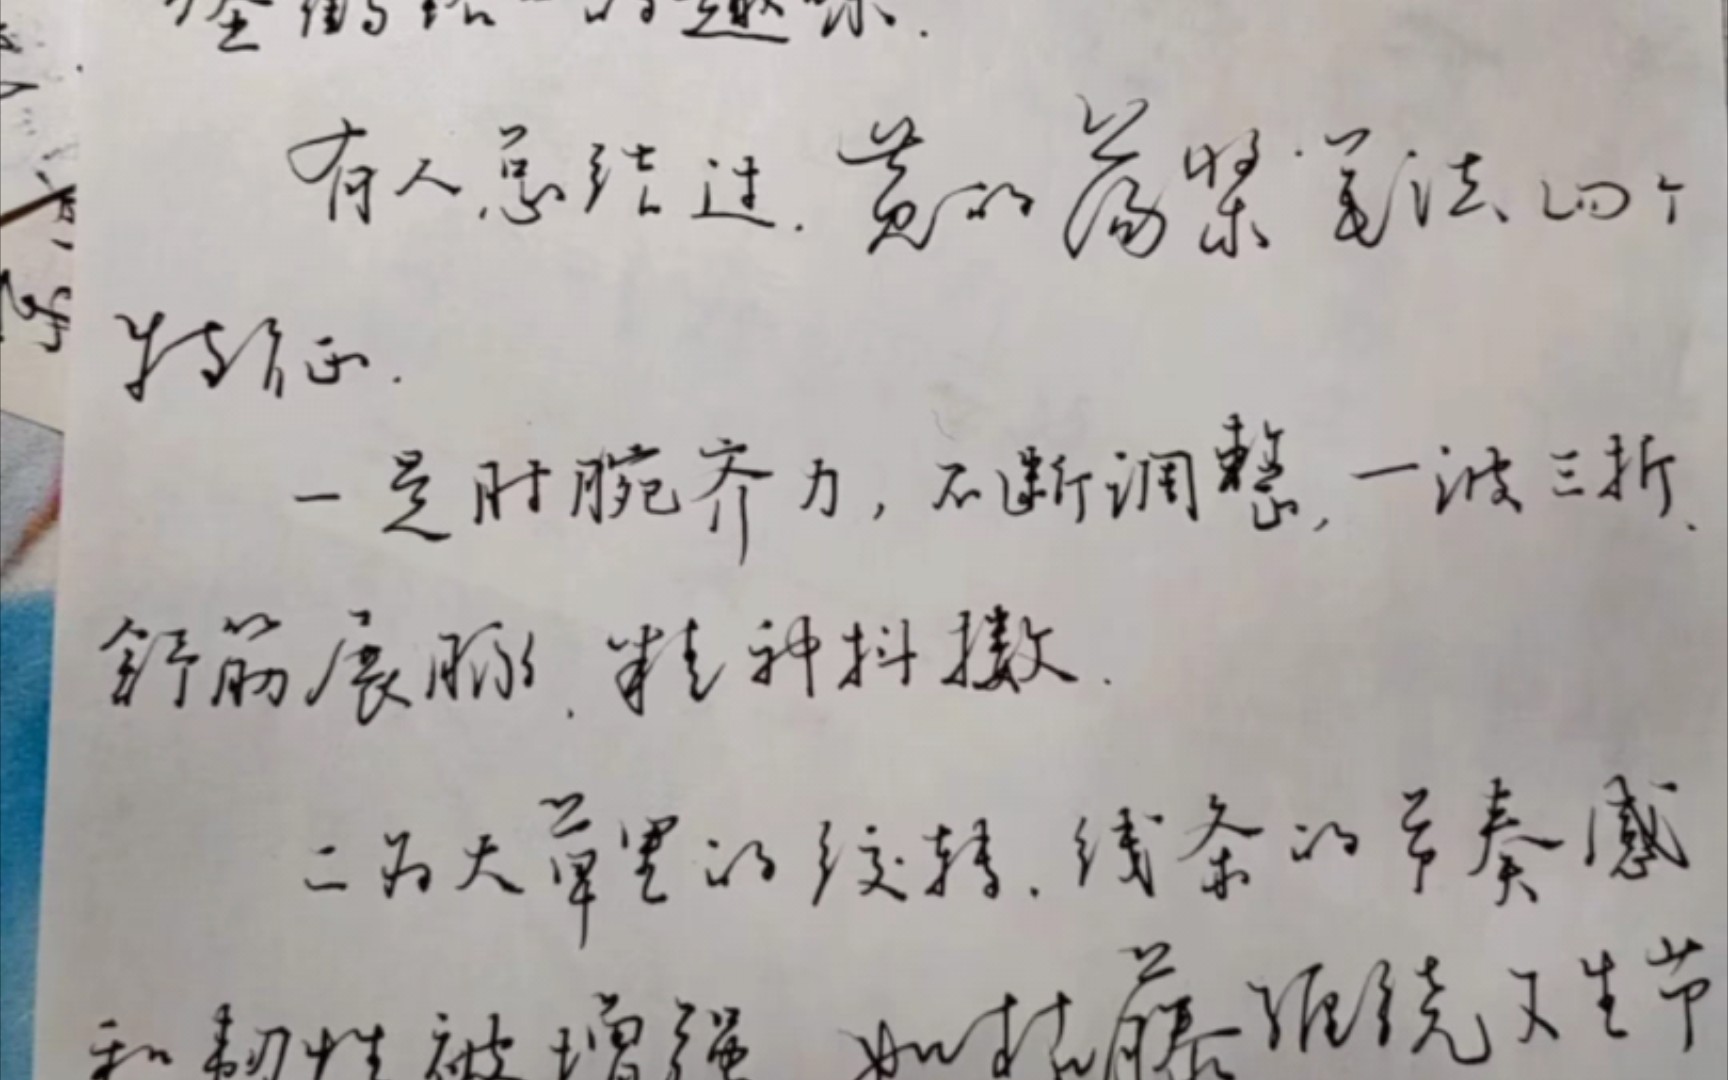 的趣味.
有人总结过.黄的荡桨笔法四个
特征.
一是肘腕齐力,不断调整,一波三折.
舒筋展脉.精神抖擞.
二为大草里的绞转.线条的节奏感
和韧性被增强 如枯藤缠绕又生节